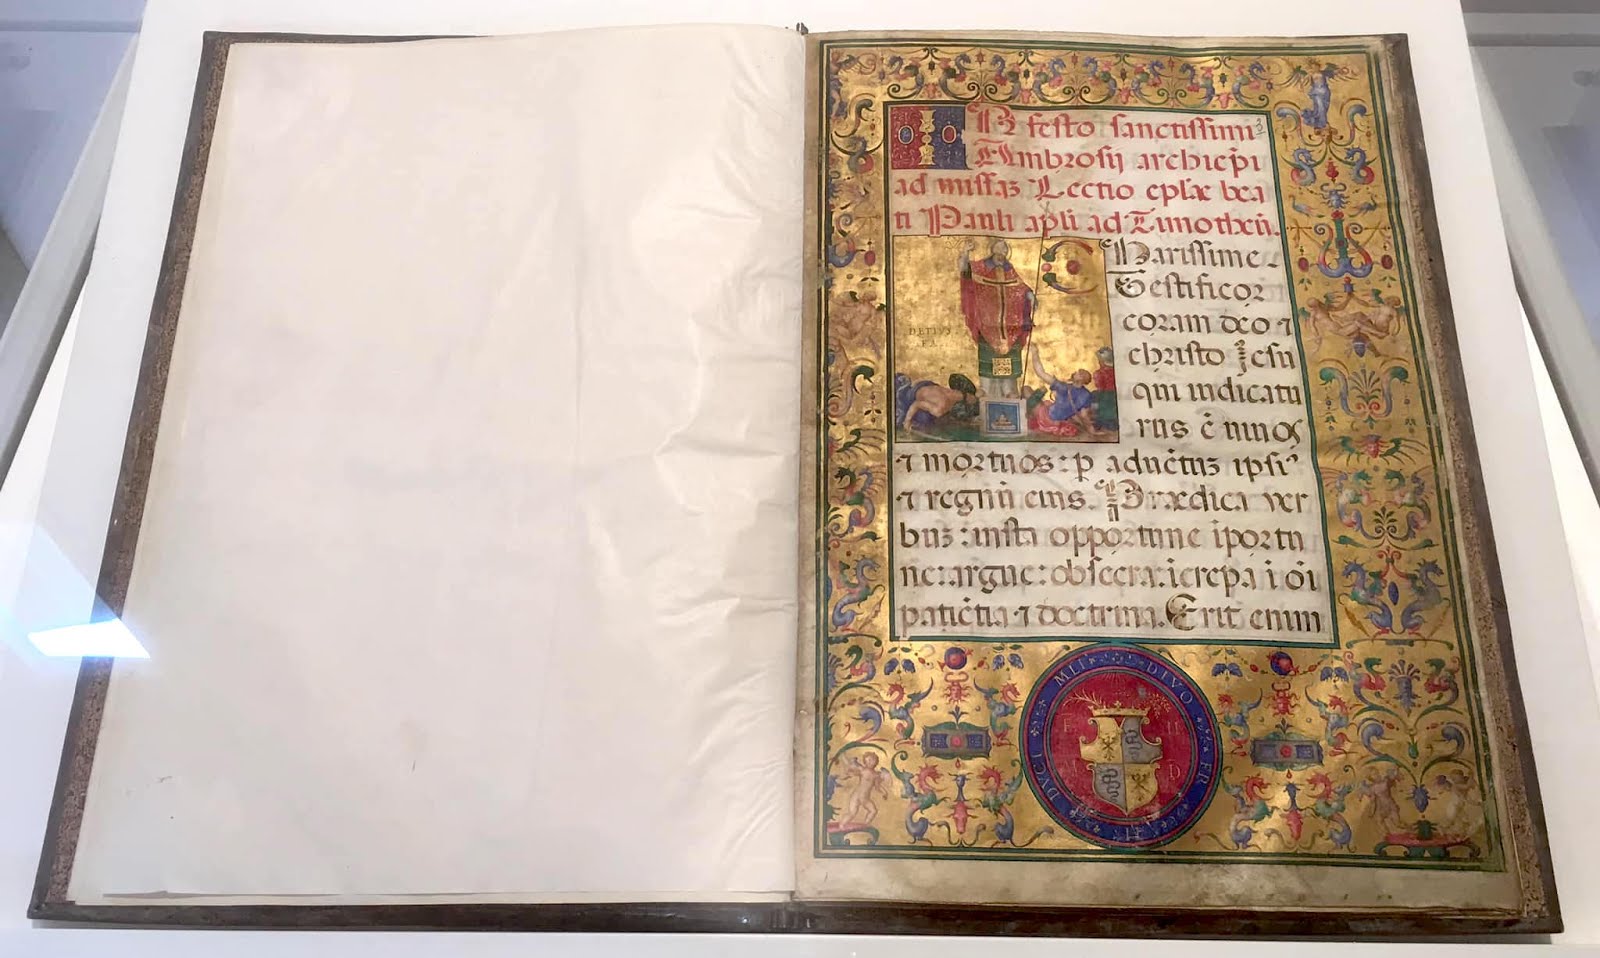 IN festo sanctissimi
Ambrosij archiep̄i
ad missaꝫ Lectio eplæ bea
ti Pauli apl̄i ad Timotheū.
CHarissime
Testificor
coram deo ⁊
christo Jesu
qui iudicatu
rus ē viuos
⁊ mortuos: p aduētuꝫ ipsiꝰ
⁊ regnū eius. Prædica ver
buꝫ: insta opportune īportu
ne: argue: obsecra: īcrepa ī oī
patiētia ⁊ doctrina. Erit enim
DUCI MLI DIVO FR